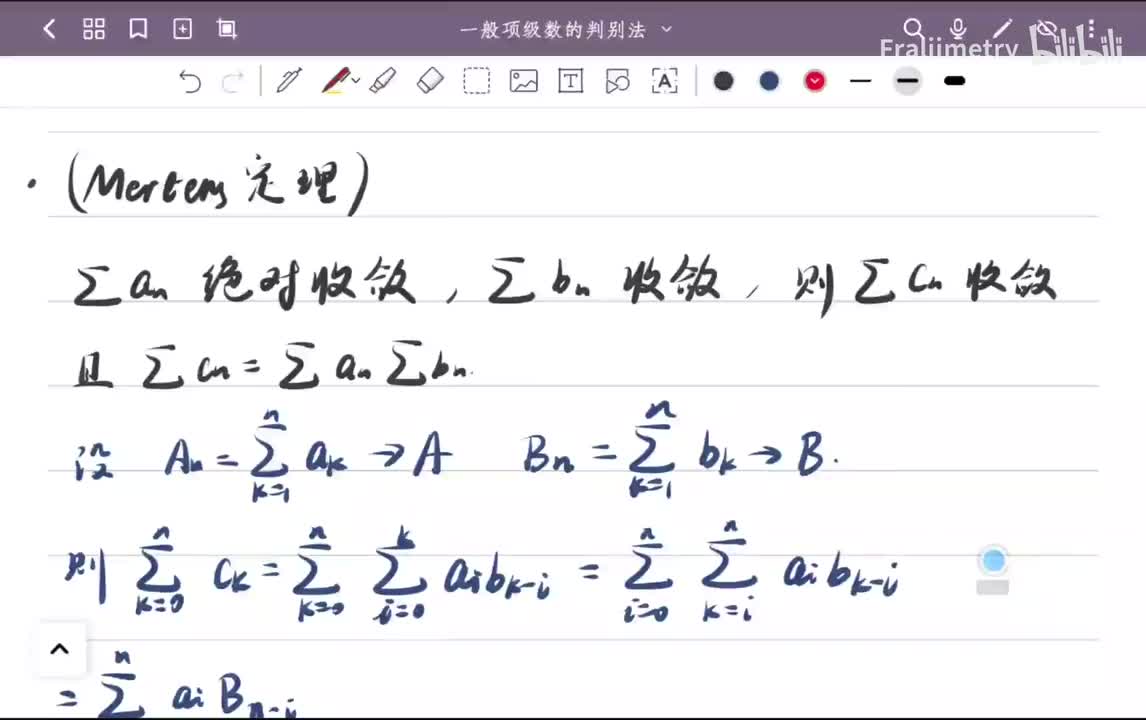 一般项级数的判别法
Fraliimetry bilibili
T A
• (Mertens 定理)
∑ aₙ 绝对收敛, ∑ bₙ 收敛, 则 ∑ Cₙ 收敛
且 ∑ cₙ = ∑ aₙ ∑ bₙ.
设 Aₙ = ∑_{k=1}^{n} a_k → A Bₙ = ∑_{k=1}^{n} b_k → B.
则 ∑_{k=0}^{n} c_k = ∑_{k=0}^{n} ∑_{i=0}^{k} a_i b_{k-i} = ∑_{i=0}^{n} ∑_{k=i}^{n} a_i b_{k-i}
= ∑^{n} a_i B_{n-i}